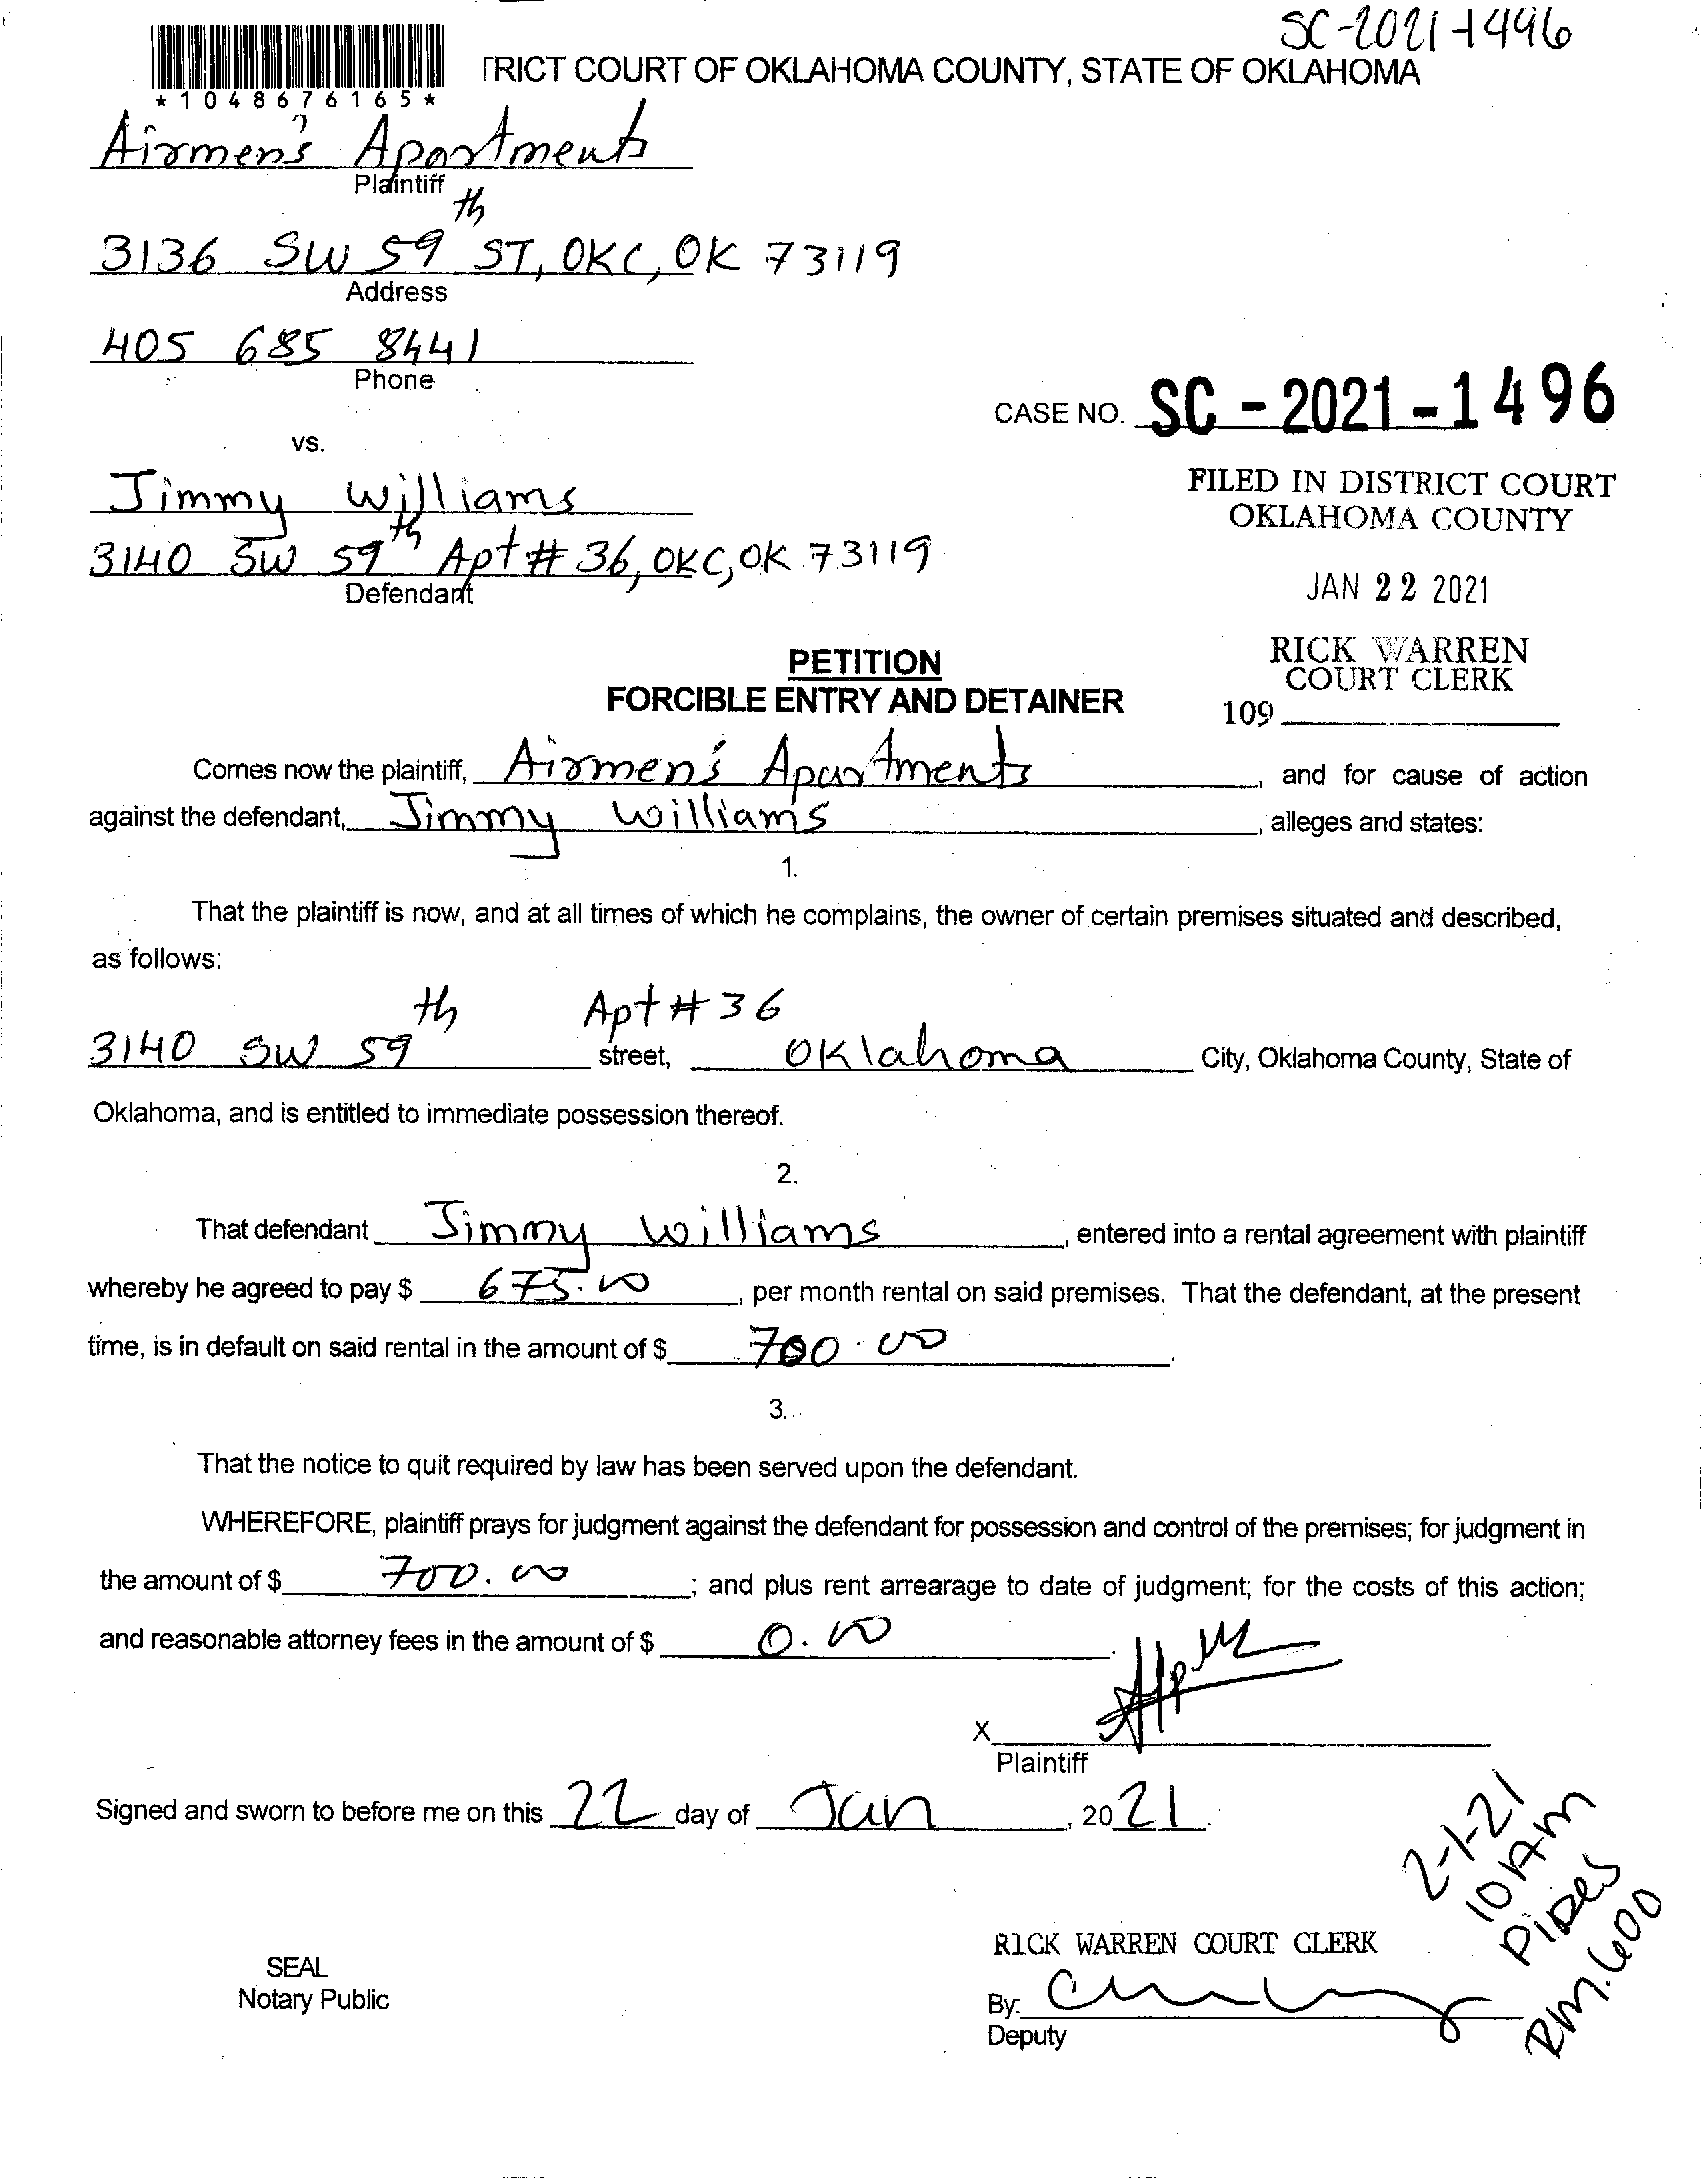 SC-2021-1496
TRICT COURT OF OKLAHOMA COUNTY, STATE OF OKLAHOMA
*1048676165*
Airmen's Apartments
Plaintiff
3136 SW 59th ST, OKC, OK 73119
Address
405 685 8441
Phone
CASE NO. SC - 2021 - 1496
vs.
FILED IN DISTRICT COURT
OKLAHOMA COUNTY
Jimmy Williams
3140 SW 59th Apt # 36, OKC, OK 73119
Defendant
JAN 22 2021
RICK WARREN
COURT CLERK
109
PETITION
FORCIBLE ENTRY AND DETAINER
Comes now the plaintiff, Airmen's Apartments, and for cause of action
against the defendant, Jimmy Williams, alleges and states:
1.
That the plaintiff is now, and at all times of which he complains, the owner of certain premises situated and described,
as follows:
3140 SW 59th Apt # 36 street, Oklahoma City, Oklahoma County, State of
Oklahoma, and is entitled to immediate possession thereof.
2.
That defendant Jimmy Williams, entered into a rental agreement with plaintiff
whereby he agreed to pay $ 675.00, per month rental on said premises. That the defendant, at the present
time, is in default on said rental in the amount of $ 700.00.
3.
That the notice to quit required by law has been served upon the defendant.
WHEREFORE, plaintiff prays for judgment against the defendant for possession and control of the premises; for judgment in
the amount of $ 700.00; and plus rent arrearage to date of judgment; for the costs of this action;
and reasonable attorney fees in the amount of $ 0.00.
X
Plaintiff
Signed and sworn to before me on this 22 day of Jan, 2021.
2-1-21
10 AM
PIPES
RM. 600
RICK WARREN COURT CLERK
SEAL
Notary Public
By:
Deputy